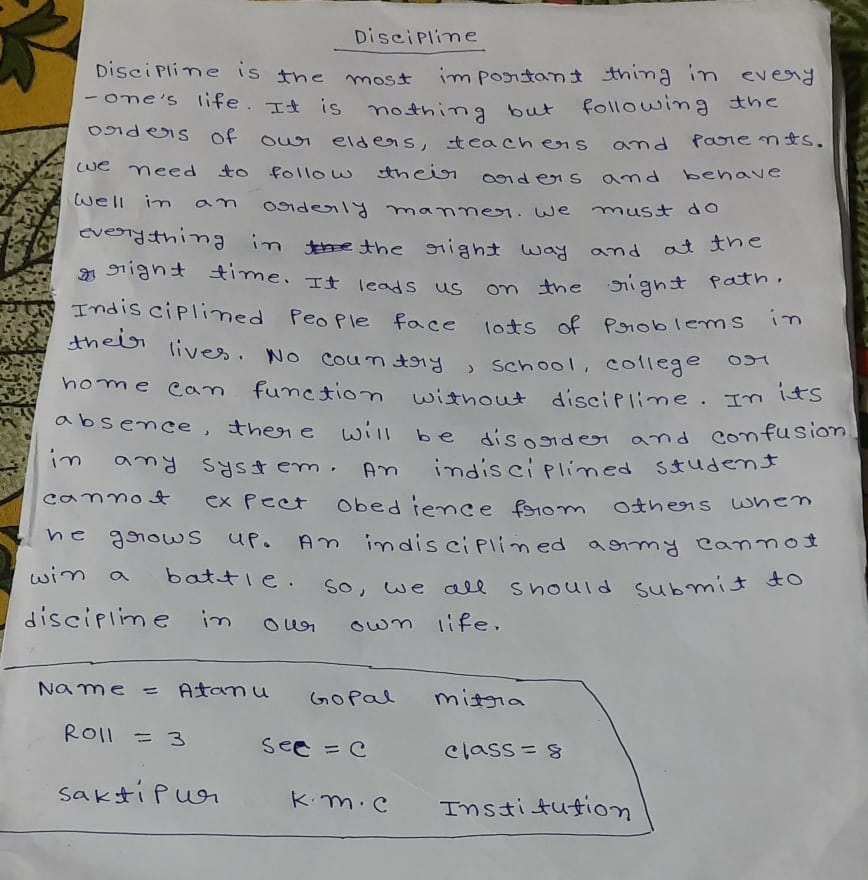 Discipline
Discipline is the most important thing in every
-one's life. It is nothing but following the
orders of our elders, teachers and parents.
we need to follow their orders and behave
well in an orderly manner. we must do
everything in the the right way and at the
right time. It leads us on the right path.
Indisciplined People face lots of Problems in
their lives. No country, school, college or
home can function without discipline. In its
absence, there will be disorder and confusion
in any system. An indisciplined student
cannot expect obedience from others when
he grows up. An indisciplined army cannot
win a battle. so, we all should submit to
discipline in our own life.
Name = Atanu Gopal mitra
Roll = 3 Sec = C class = 8
saktipur K.m.c Institution